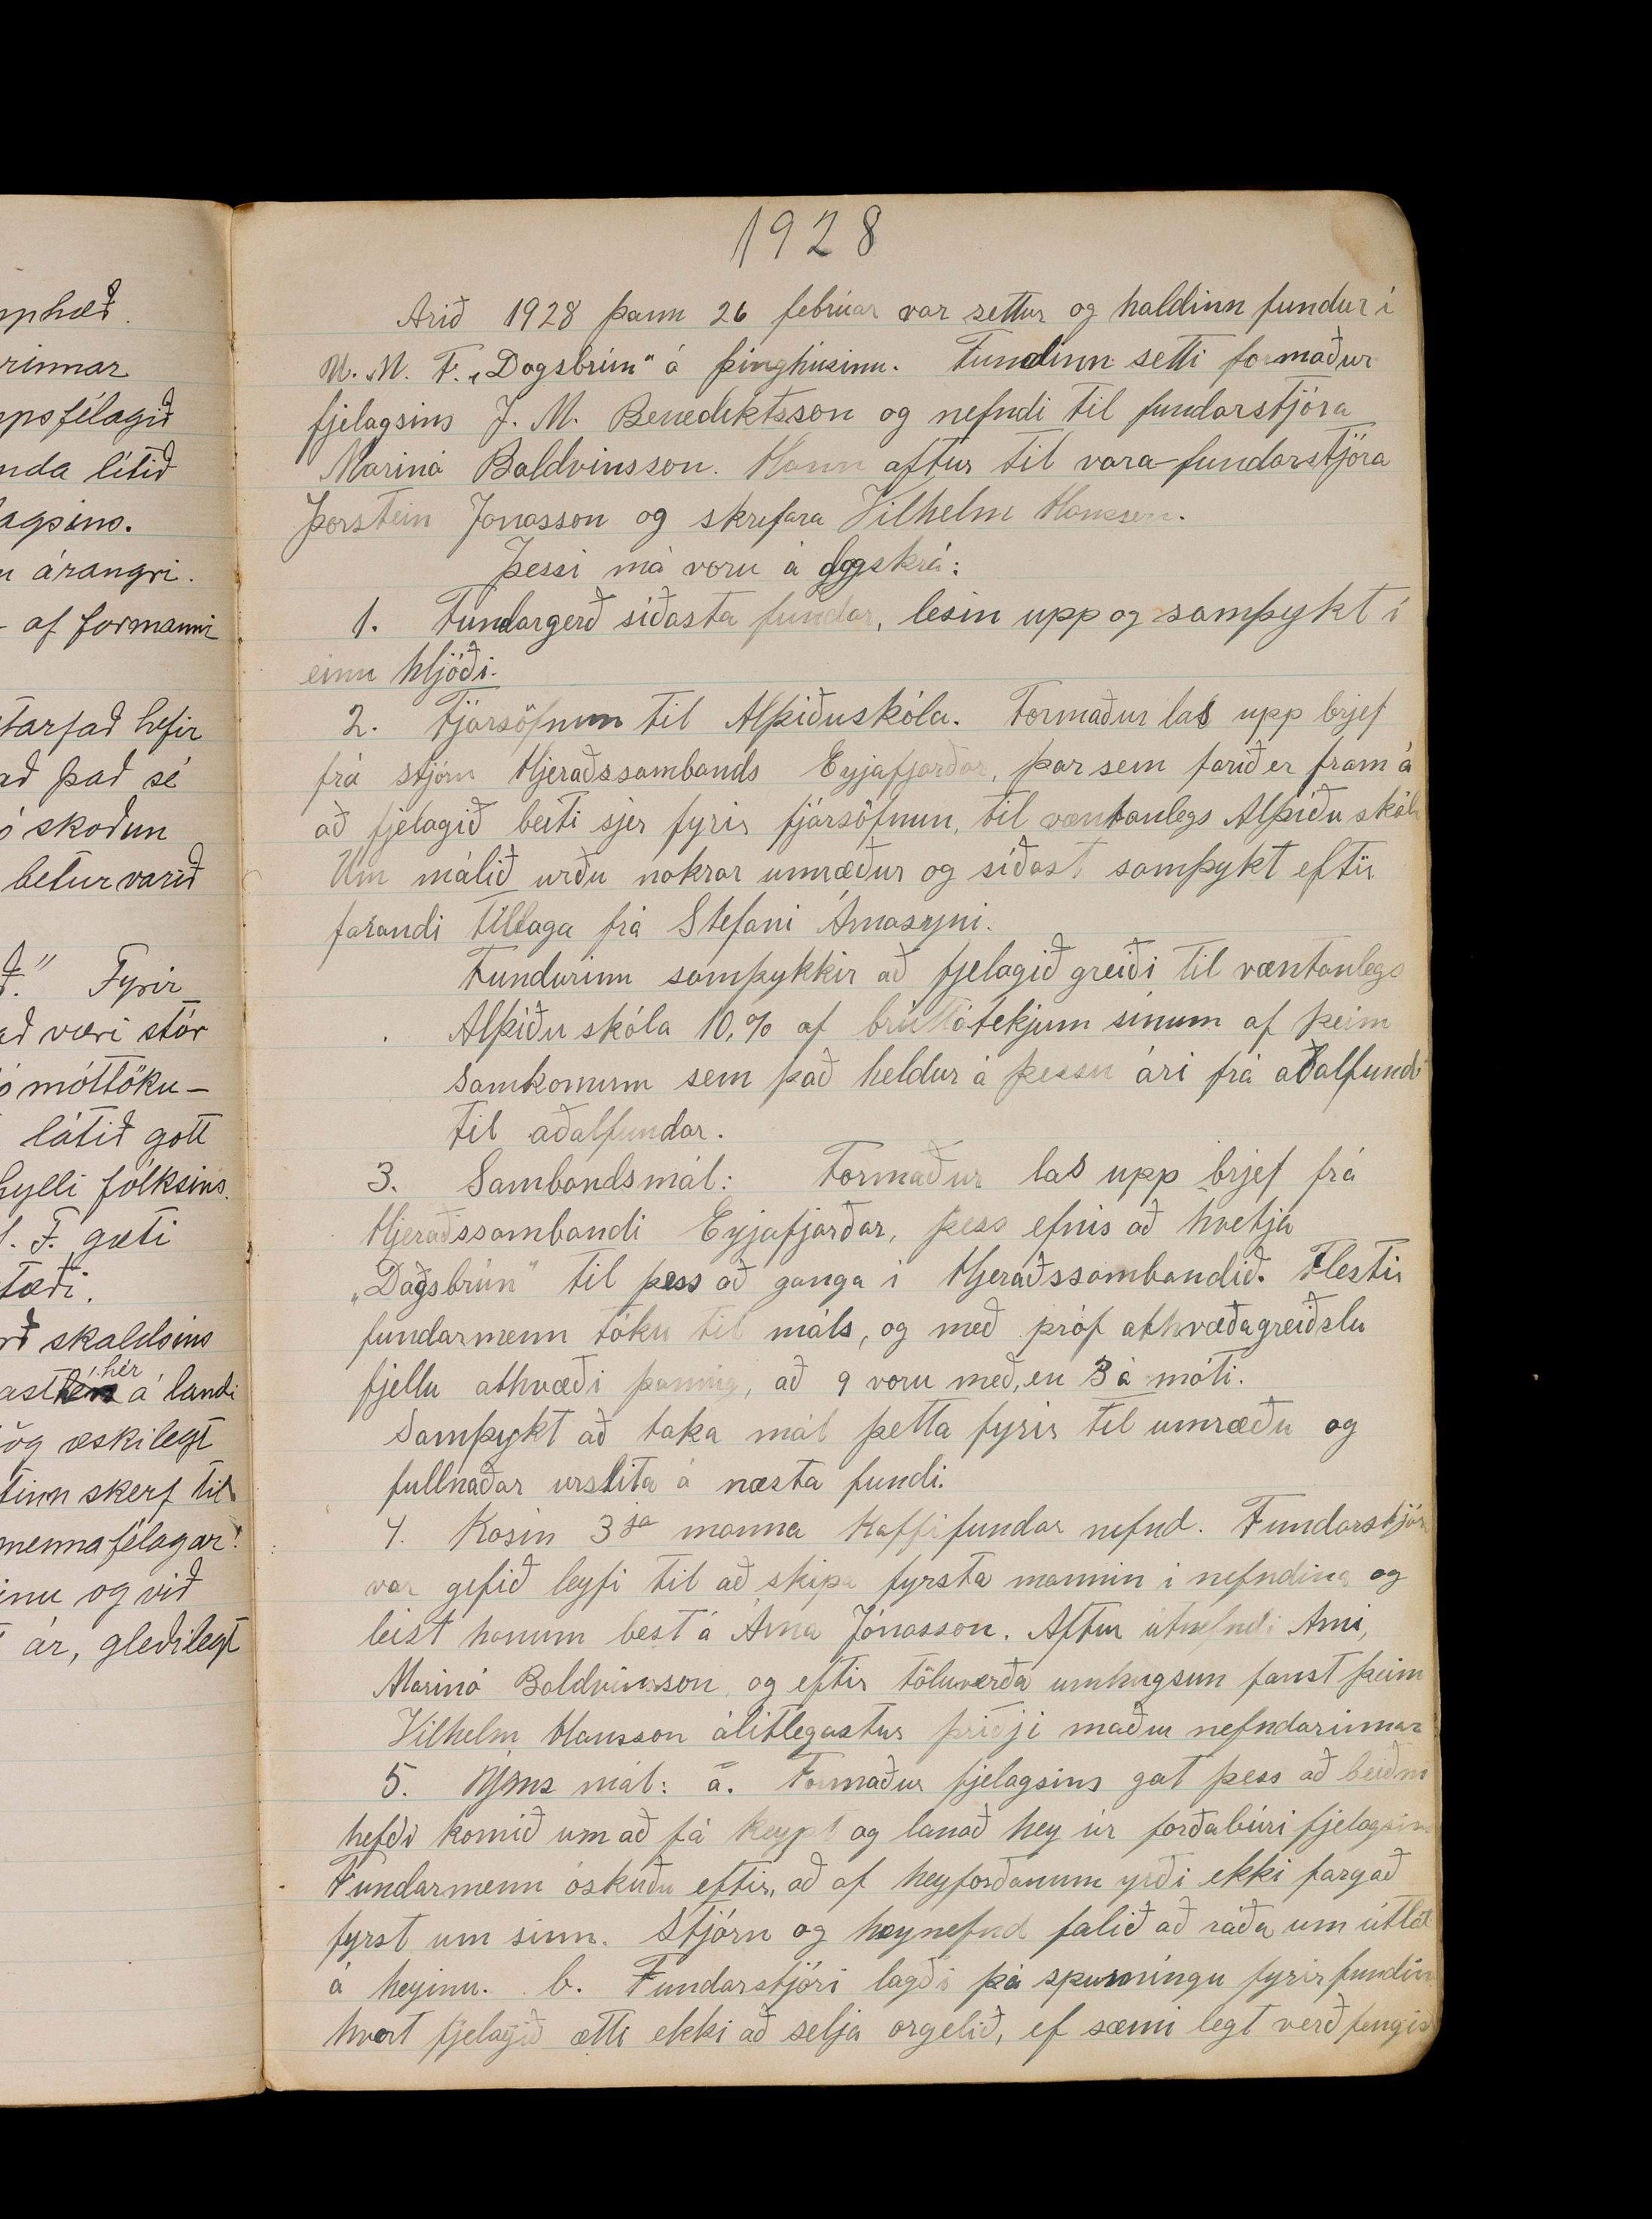 nphæð.
rinnar
psfélagið
nda lítið
agsins.
n árangri.
- af formanni
tarfað hefir
að það sé
ó skoðun
betur varið
ð." Fyrir
að væri stór
ó móttöku-
látið gott
hylli fólksins.
F. gæti
tæði.
rð skaldsins
hér
ast á landi
ög æskilegt
tinn skerf til
mennafélagar!
inu og við
ár, gleðilegt
1928
Arið 1928 þann 26 febrúar var settur og haldinn fundur í
U. M. F. „Dagsbrún" á þinghúsinu. Fundinn setti formaður
fjelagsins J. M. Benediktsson og nefndi til fundarstjóra
Marinó Baldvinsson. Hann aftur til vara-fundarstjóra
Þorstein Jónasson og skrifara Vilhelm Hansson.
Þessi má voru á dagskrá:
1. Fundargerð síðasta fundar, lesin upp og samþykt í
einu hljóði.
2. Fjársöfnun til Alþíðuskóla. Formaður las upp brjef
frá stjórn Hjeraðssambands Eyjafjarðar, þar sem farið er fram á
að fjelagið beiti sjer fyrir fjársöfnun, til væntanlegs Alþíðu skóla
Um málið urðu nokrar umræður og síðast samþykt eftir
farandi tillaga frá Stefani Árnasyni.
Fundurinn samþykkir að fjelagið greiði til væntanlegs
Alþíðu skóla 10.% af brúttótekjum sínum af þeim
samkomum sem það heldur á þessu ári frá aðalfundi
til aðalfundar.
3. Sambandsmál: Formaður las upp brjef frá
Hjeraðssambandi Eyjafjarðar, þess efnis að hvetja
„Dagsbrún" til þess að ganga í Hjeraðssambandið. Flestir
fundarmenn tóku til máls, og með próf athvæðagreiðslu
fjellu athvæði þannig, að 9 voru með, en 3 á móti.
Samþykt að taka mál þetta fyrir til umræðu og
fullnaðar urslita á næsta fundi.
4. Kosin 3ja manna Kaffifundar nefnd. Fundarstjóra
var gefið leyfi til að skipa fyrsta mannin í nefndina og
leist honum best á Árna Jónasson. Aftur útnefndi Arni,
Marinó Baldvinsson, og eftir töluverða umhugsun fanst þeim
Vilhelm Hansson álitlegastur þriðji maður nefndarinnar
5. Ýms mál: a. Formaður fjelagsins gat þess að beiðni
hefði komið um að fá keypt og lanað hey úr forðabúri fjelagsins
Fundarmenn óskuðu eftir, að af heyforðanum yrði ekki fargað
fyrst um sinn. Stjórn og heynefnd falið að ráða um útlát
á heyinu. b. Fundarstjóri lagði þá spurningu fyrir fundin
hvort fjelagið ætti ekki að selja orgelið, ef sæmi legt verð fengist